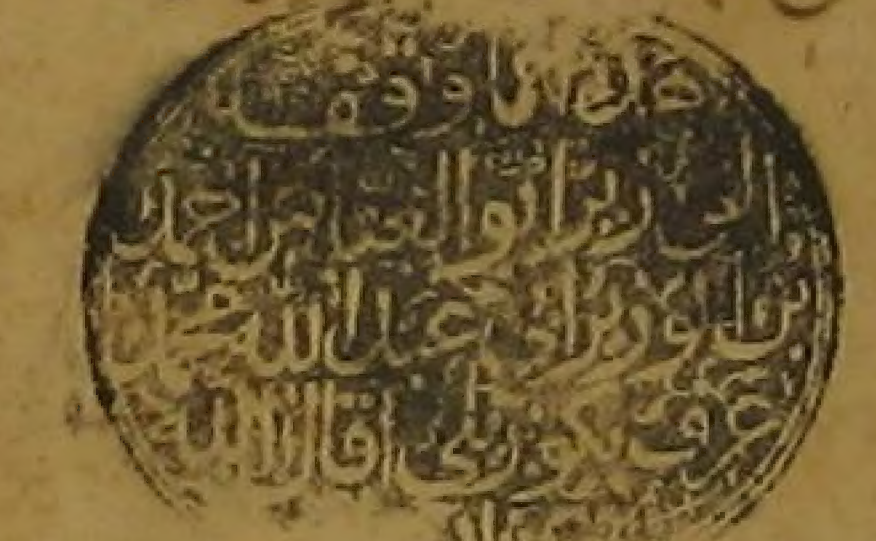 هذا ما وقف
الوزير ابو العباس احمد
بن الوزير ابي عبد الله محمد
عرف بكوپريلي اقال الله